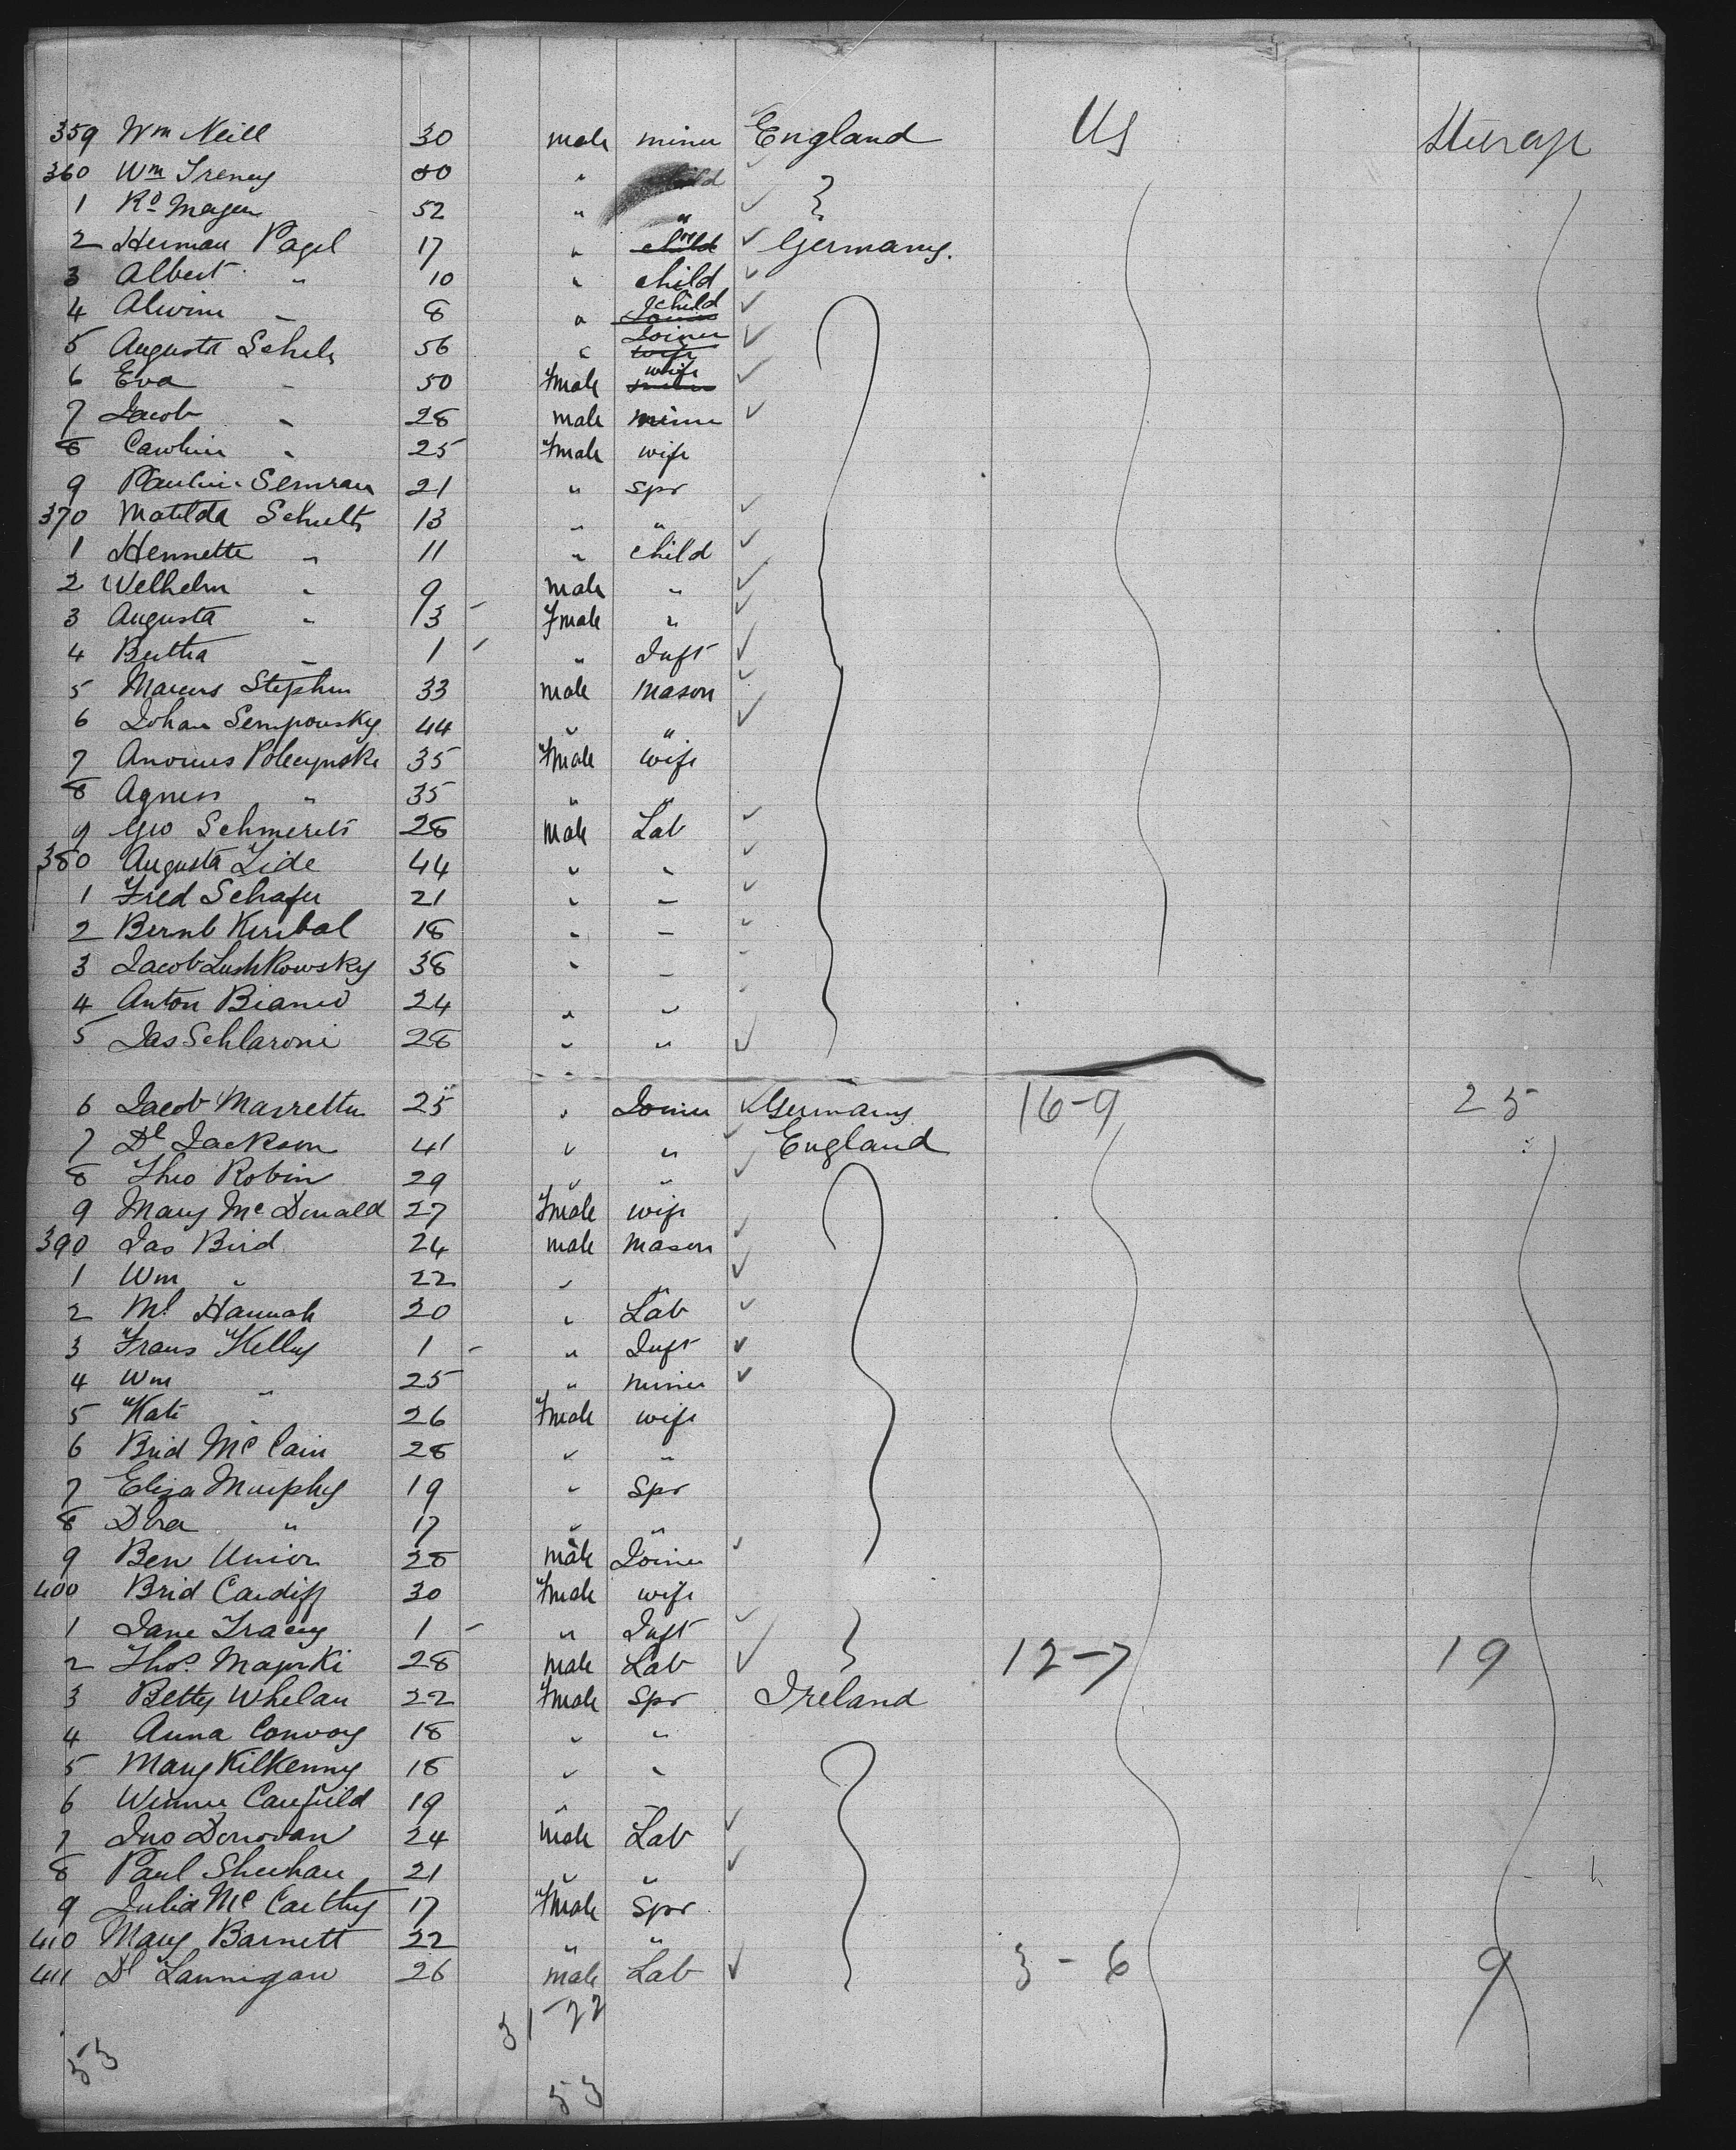 359 Wm Neill 30 male miner England US Steerage
360 Wm Treney 50 "
1 Rd Mayer 52 " "
2 Herman Pagel 17 " Germany.
3 Albert " 10 " child
4 Alwine " 8 " child
5 August Schulz 56 " Joiner
6 Eva " 50 Fmale wife
7 Jacob " 28 male miner
8 Caroline " 25 Fmale wife
9 Pauline Semrau 21 " Spr
370 Matilda Schultz 13 " "
1 Hennette " 11 " child
2 Welhelm " 9 male "
3 Augusta " 3 Fmale "
4 Bertha " 1 " Inft
5 Marcus Stephen 33 male Mason
6 Johan Sempousky 44 " "
7 Polecynske 35 Fmale wife
8 Agness " 35 " "
9 Geo Schmerits 28 male Lab
380 August Zide 44 " "
1 Fred Schafer 21 " "
2 Bernb Keribal 18 " "
3 Jacob Lushkowsky 38 " "
4 Anton Bianco 24 " "
5 Jas Schlaroni 28 " "
6 Jacob Marretta 25 " Joiner Germany 16-9 25
7 Dl Jackson 41 " " England
8 Theo Robin 29 " "
9 Mary McDonald 27 Fmale wife
390 Jas Bird 24 male Mason
1 Wm " 22 " "
2 Ml Hannah 20 " Lab
3 Frans Kelly 1 " Inft
4 Wm " 25 " miner
5 Kate " 26 Fmale wife
6 Brid McCain 28 " "
7 Eliza Murphy 19 " Spr
8 Dora " 17 " "
9 Ben Union 28 male Joiner
400 Brid Cardiff 30 Fmale wife
1 Jane Tracey 1 " Inft
2 Thos. Majorki 28 male Lab 12-7 19
3 Betty Whelan 22 Fmale Spr Ireland
4 Anna Convoy 18 " "
5 Mary Kilkenny 18 " "
6 Winnie Caufield 19 " "
7 Jno Donovan 24 male Lab
8 Paul Sheehan 21 " "
9 Julia McCarthy 17 Fmale Spr
410 Mary Barnett 22 " "
411 Dl Lannigan 26 male Lab 3-6 9
31-22
53
53